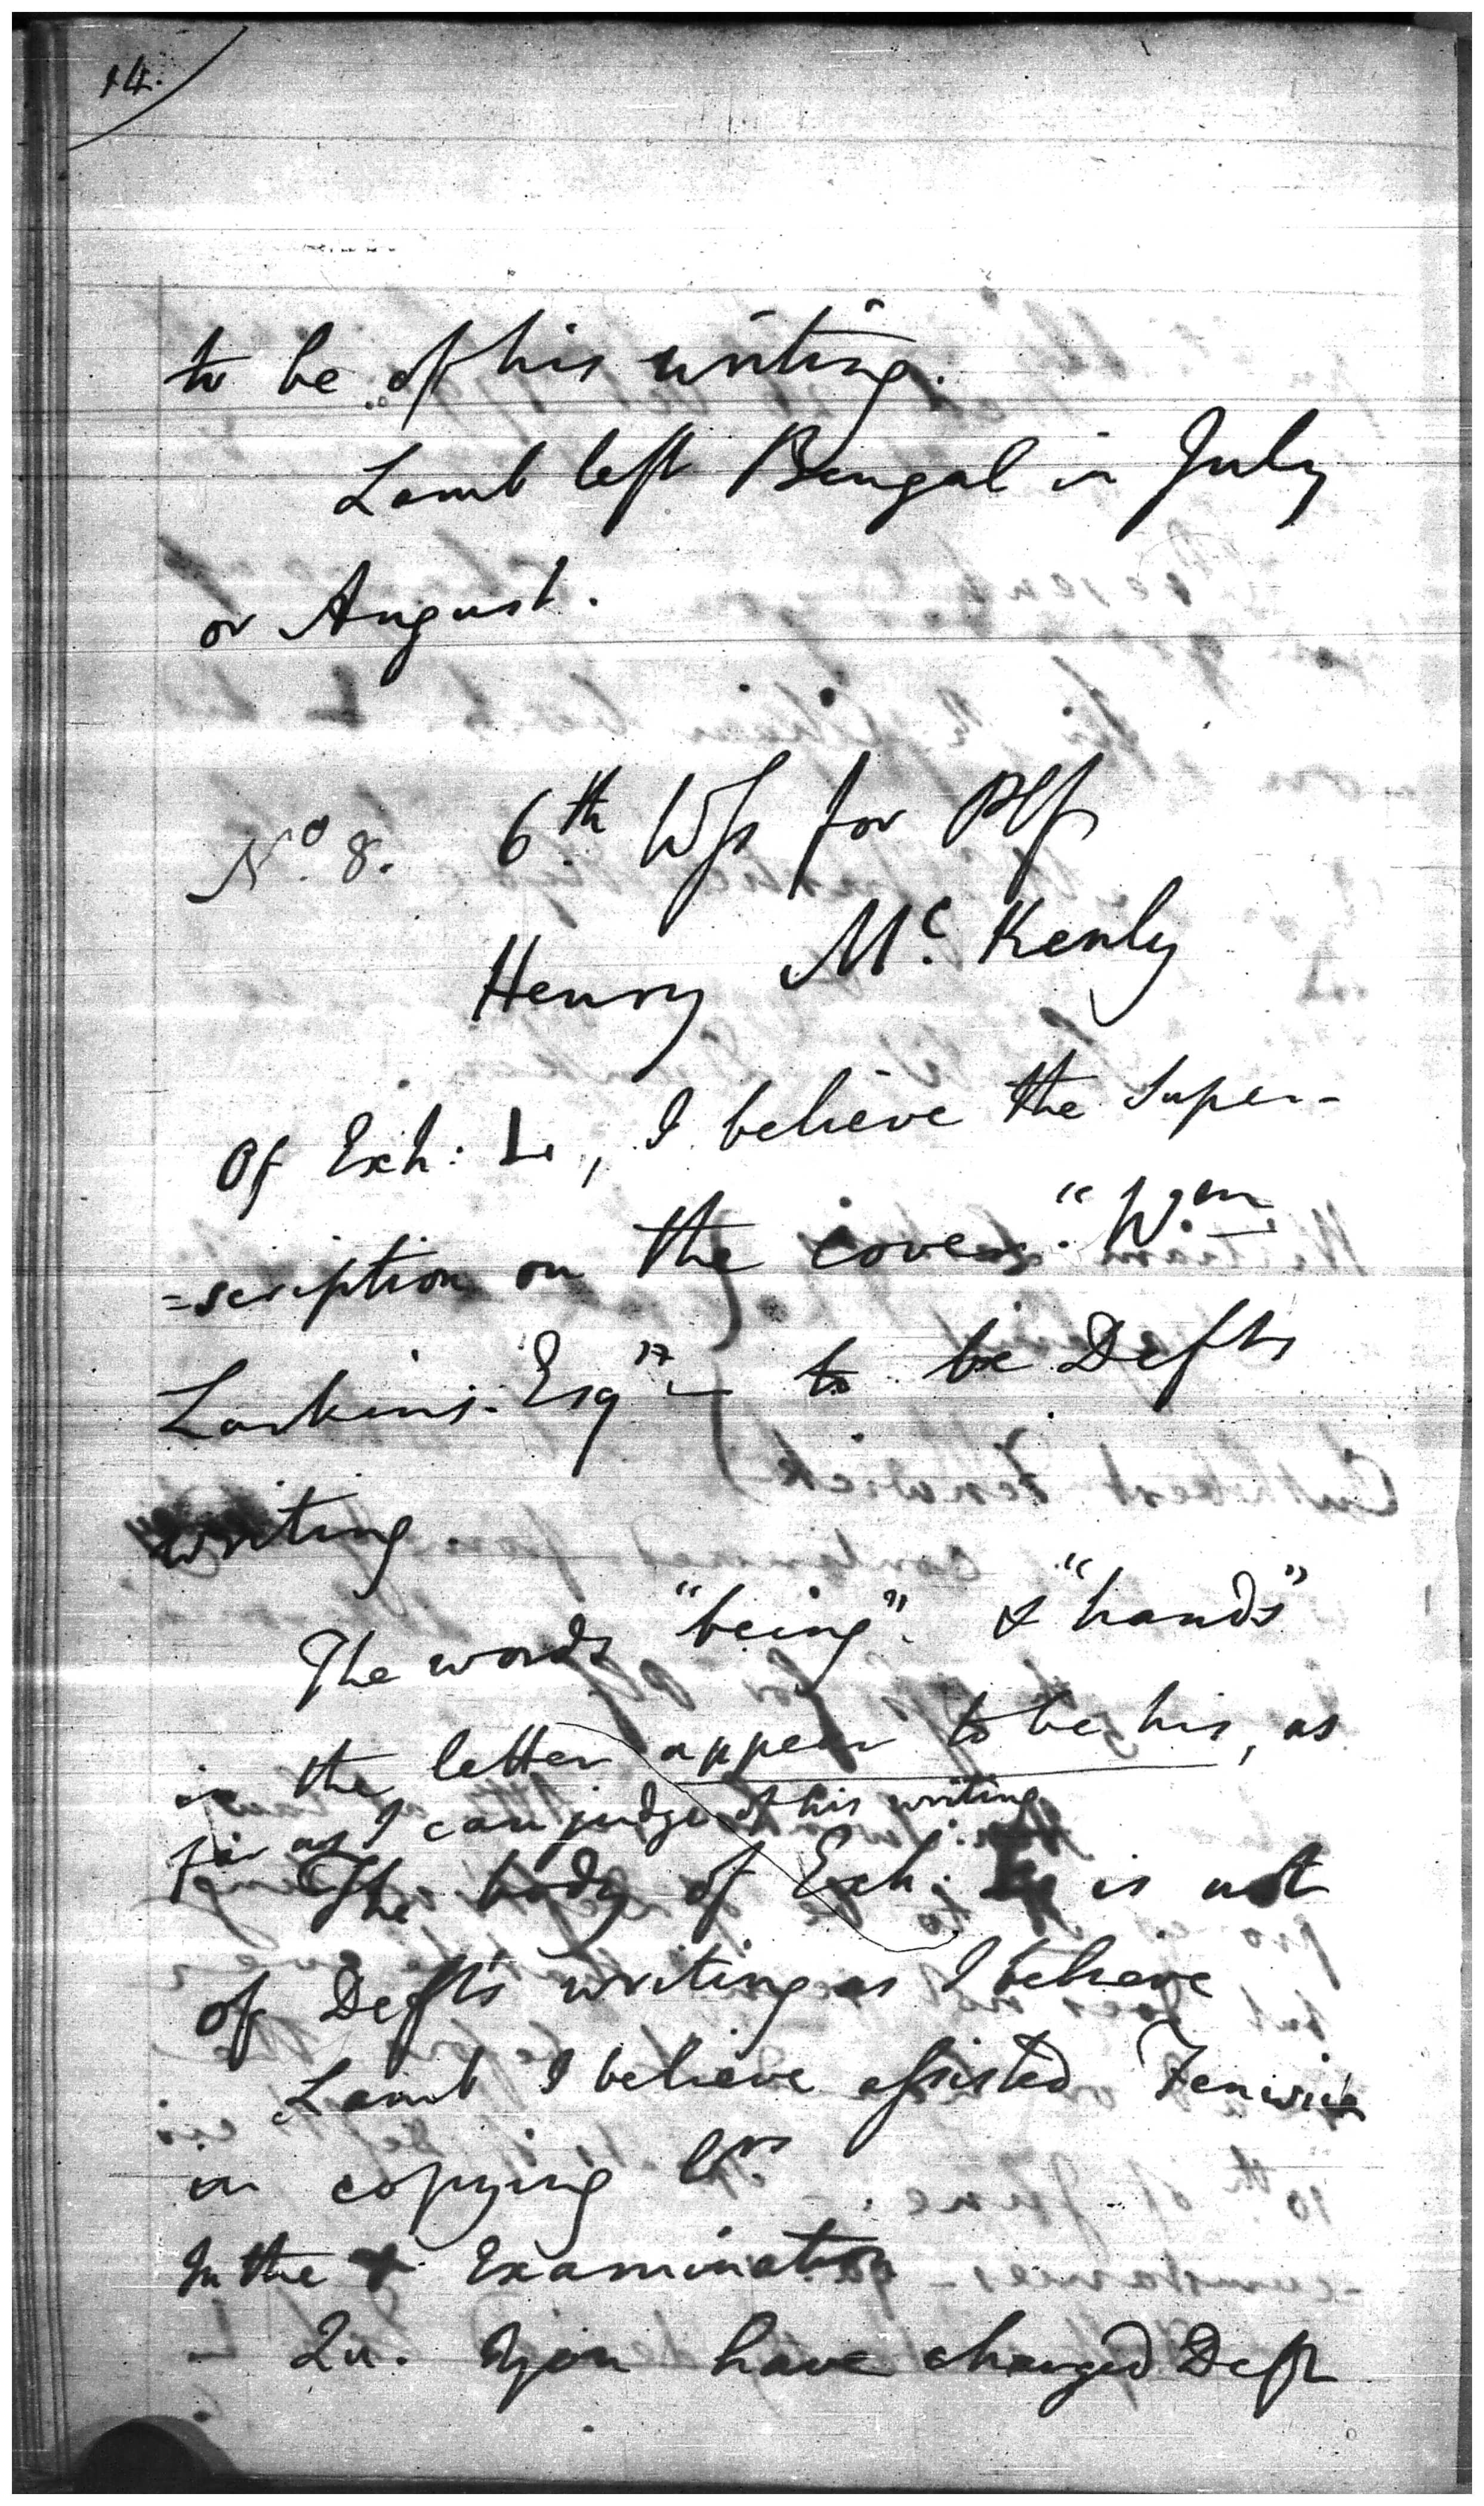 14.
to be of his writing.
Lamb left Bengal in July
or August.
No. 8. 6th Wss for Plf
Henry Mc. Kenly
Of Exh: L, I believe the Super-
=scription on the cover "Wm
Larkins. Esqr" to be Defts
writing
The words "being" & "hands"
in the letter appear to be his, as
far as I can judge of his writing
The body of Exh: L is not
of Deft's writing as I believe
Lamb I believe assisted Fenwick
in copying
In the + Examination
Qu. you have charged Deft